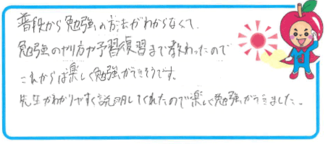 普段から勉強の方法がわからなくて、
勉強のやり方や予習復習まで教わったので
これからは楽しく勉強ができそうです。
先生がわかりやすく説明してくれたので楽しく勉強ができました。